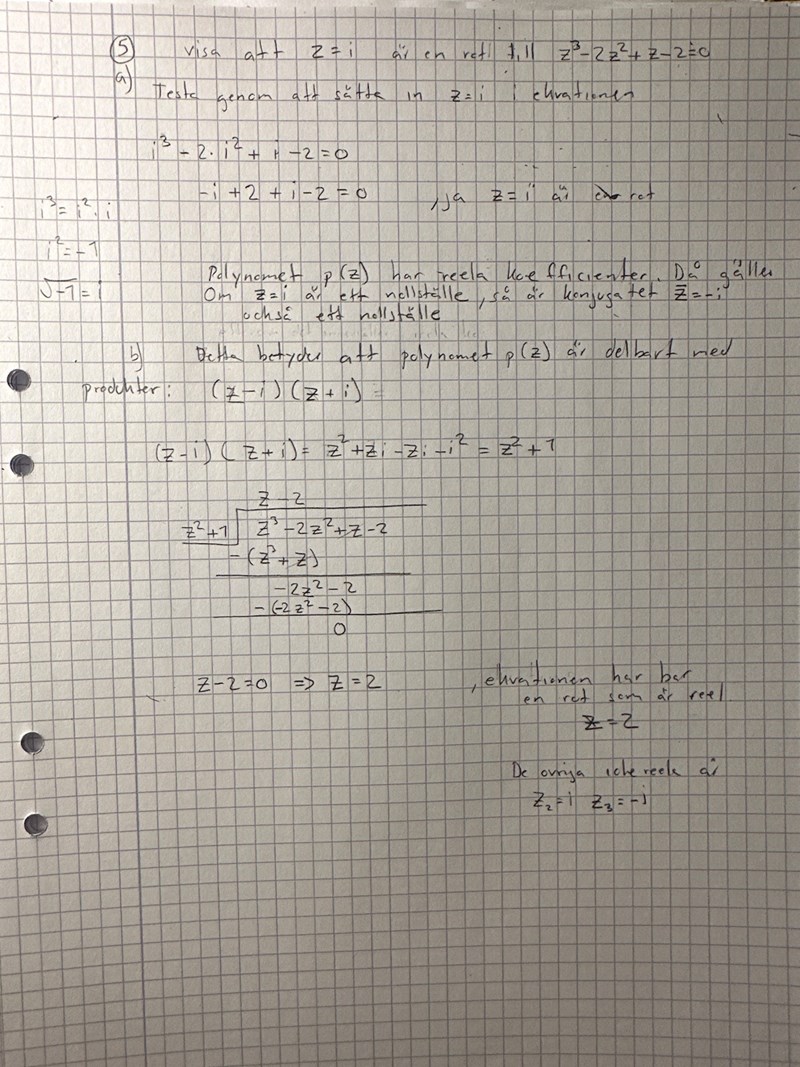 ⑤ Visa att z=i är en rot till z³-2z²+z-2=0
a)
Testa genom att sätta in z=i i ekvationen
i³ - 2·i² + i - 2 = 0
-i + 2 + i - 2 = 0 , ja z=i är en rot
i³ = i²·i
i² = -1
√-1 = i
Polynomet p(z) har reela koefficienter. Då gäller
Om z=i är ett nollställe, så är konjugatet z̄=-i
också ett nollställe
b) Detta betyder att polynomet p(z) är delbart med
produkter: (z-i)(z+i) =
(z-i)(z+i) = z²+zi-zi-i² = z²+1
z-2
z²+1 z³-2z²+z-2
-(z³+z)
-2z²-2
-(-2z²-2)
0
z-2=0 => z=2 , ekvationen har bar
en rot som är reel
z=2
De ovriga icke reela är
z₂=i z₃=-i